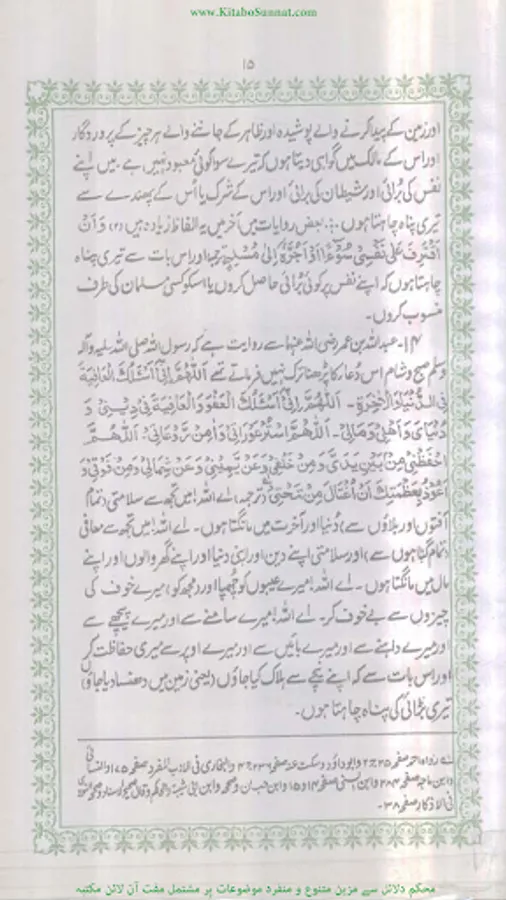 www.KitaboSunnat.com
۱۵
اور زمین کے پیدا کرنے والے پوشیدہ اور ظاہر کے جاننے والے ہر چیز کے پروردگار
اور اس کے مالک میں گواہی دیتا ہوں کہ تیرے سوا کوئی معبود نہیں ہے۔ میں اپنے
نفس کی بُرائی اور شیطان کی برائی اور اس کے شرک یا اُس کے پھندے سے
تیری پناہ چاہتا ہوں۔ بعض روایات میں آخر میں یہ الفاظ زیادہ ہیں (۲) وَ اَنْ
اَقْتَرِفَ عَلٰی نَفْسِیْ سُوْءًا اَوْ اَجُرَّہٗ اِلٰی مُسْلِمٍ ترجمہ اور اس بات سے تیری پناہ
چاہتا ہوں کہ اپنے نفس پر کوئی بُرائی حاصل کروں یا اسکو کسی مسلمان کی طرف
منسوب کروں۔
۱۴۔ عبداللہ بن عمر رضی اللہ عنہما سے روایت ہے کہ رسول اللہ صلی اللہ علیہ وآلہ
وسلم صبح و شام اس دُعا کا پڑھنا ترک نہیں فرماتے تھے اَللّٰهُمَّ اِنِّیْ اَسْئَلُكَ الْعَافِيَةَ
فِی الدُّنْیَا وَالْاٰخِرَةِ۔ اَللّٰهُمَّ اِنِّیْ اَسْئَلُكَ الْعَفْوَ وَالْعَافِیَةَ فِیْ دِیْنِیْ وَ
دُنْیَایَ وَ اَهْلِیْ وَ مَالِیْ۔ اَللّٰهُمَّ اسْتُرْ عَوْرَاتِیْ وَ اٰمِنْ رَّوْعَاتِیْ۔ اَللّٰهُمَّ
احْفَظْنِیْ مِنْ بَیْنِ یَدَیَّ وَ مِنْ خَلْفِیْ وَ عَنْ یَّمِیْنِیْ وَ عَنْ شِمَالِیْ وَ مِنْ فَوْقِیْ وَ
اَعُوْذُ بِعَظَمَتِكَ اَنْ اُغْتَالَ مِنْ تَحْتِیْ (ترجمہ) اے اللہ! میں تجھ سے سلامتی (تمام
آفتوں اور بلاؤں سے) دُنیا اور آخرت میں مانگتا ہوں۔ اے اللہ! میں تجھ سے معافی
(تمام گناہوں سے) اور سلامتی اپنے دین اور اپنی دنیا اور اپنے گھر والوں اور اپنے
مال میں مانگتا ہوں۔ اے اللہ! میرے عیبوں کو چھپا اور (مجھ کو) میرے خوف کی
چیزوں سے بے خوف کر۔ اے اللہ! میرے سامنے سے اور میرے پیچھے سے
اور میرے داہنے سے اور میرے بائیں سے اور میرے اوپر سے میری حفاظت کر
اور اس بات سے کہ اپنے نیچے سے ہلاک کیا جاؤں (یعنی زمین میں دھنسا دیا جاؤں)
تیری بڑائی کی پناہ چاہتا ہوں۔
لے رواہ احمد صفحہ ۲۵ ج۲ وابوداؤد وسکت عنہ صفحہ ۲۳۶ ج۴ والبخاری فی الادب المفرد صفحہ ۱۷۵ والنسائی
وابن ماجہ صفحہ ۲۸۴ وابن السنی صفحہ ۱۴ و ۱۵ وابن حبان وابن ابی شیبۃ والحاکم وقال صحیح الاسناد
فی الاذکار صفحہ ۳۸۔
محکم دلائل سے مزین متنوع و منفرد موضوعات پر مشتمل مفت آن لائن مکتبہ